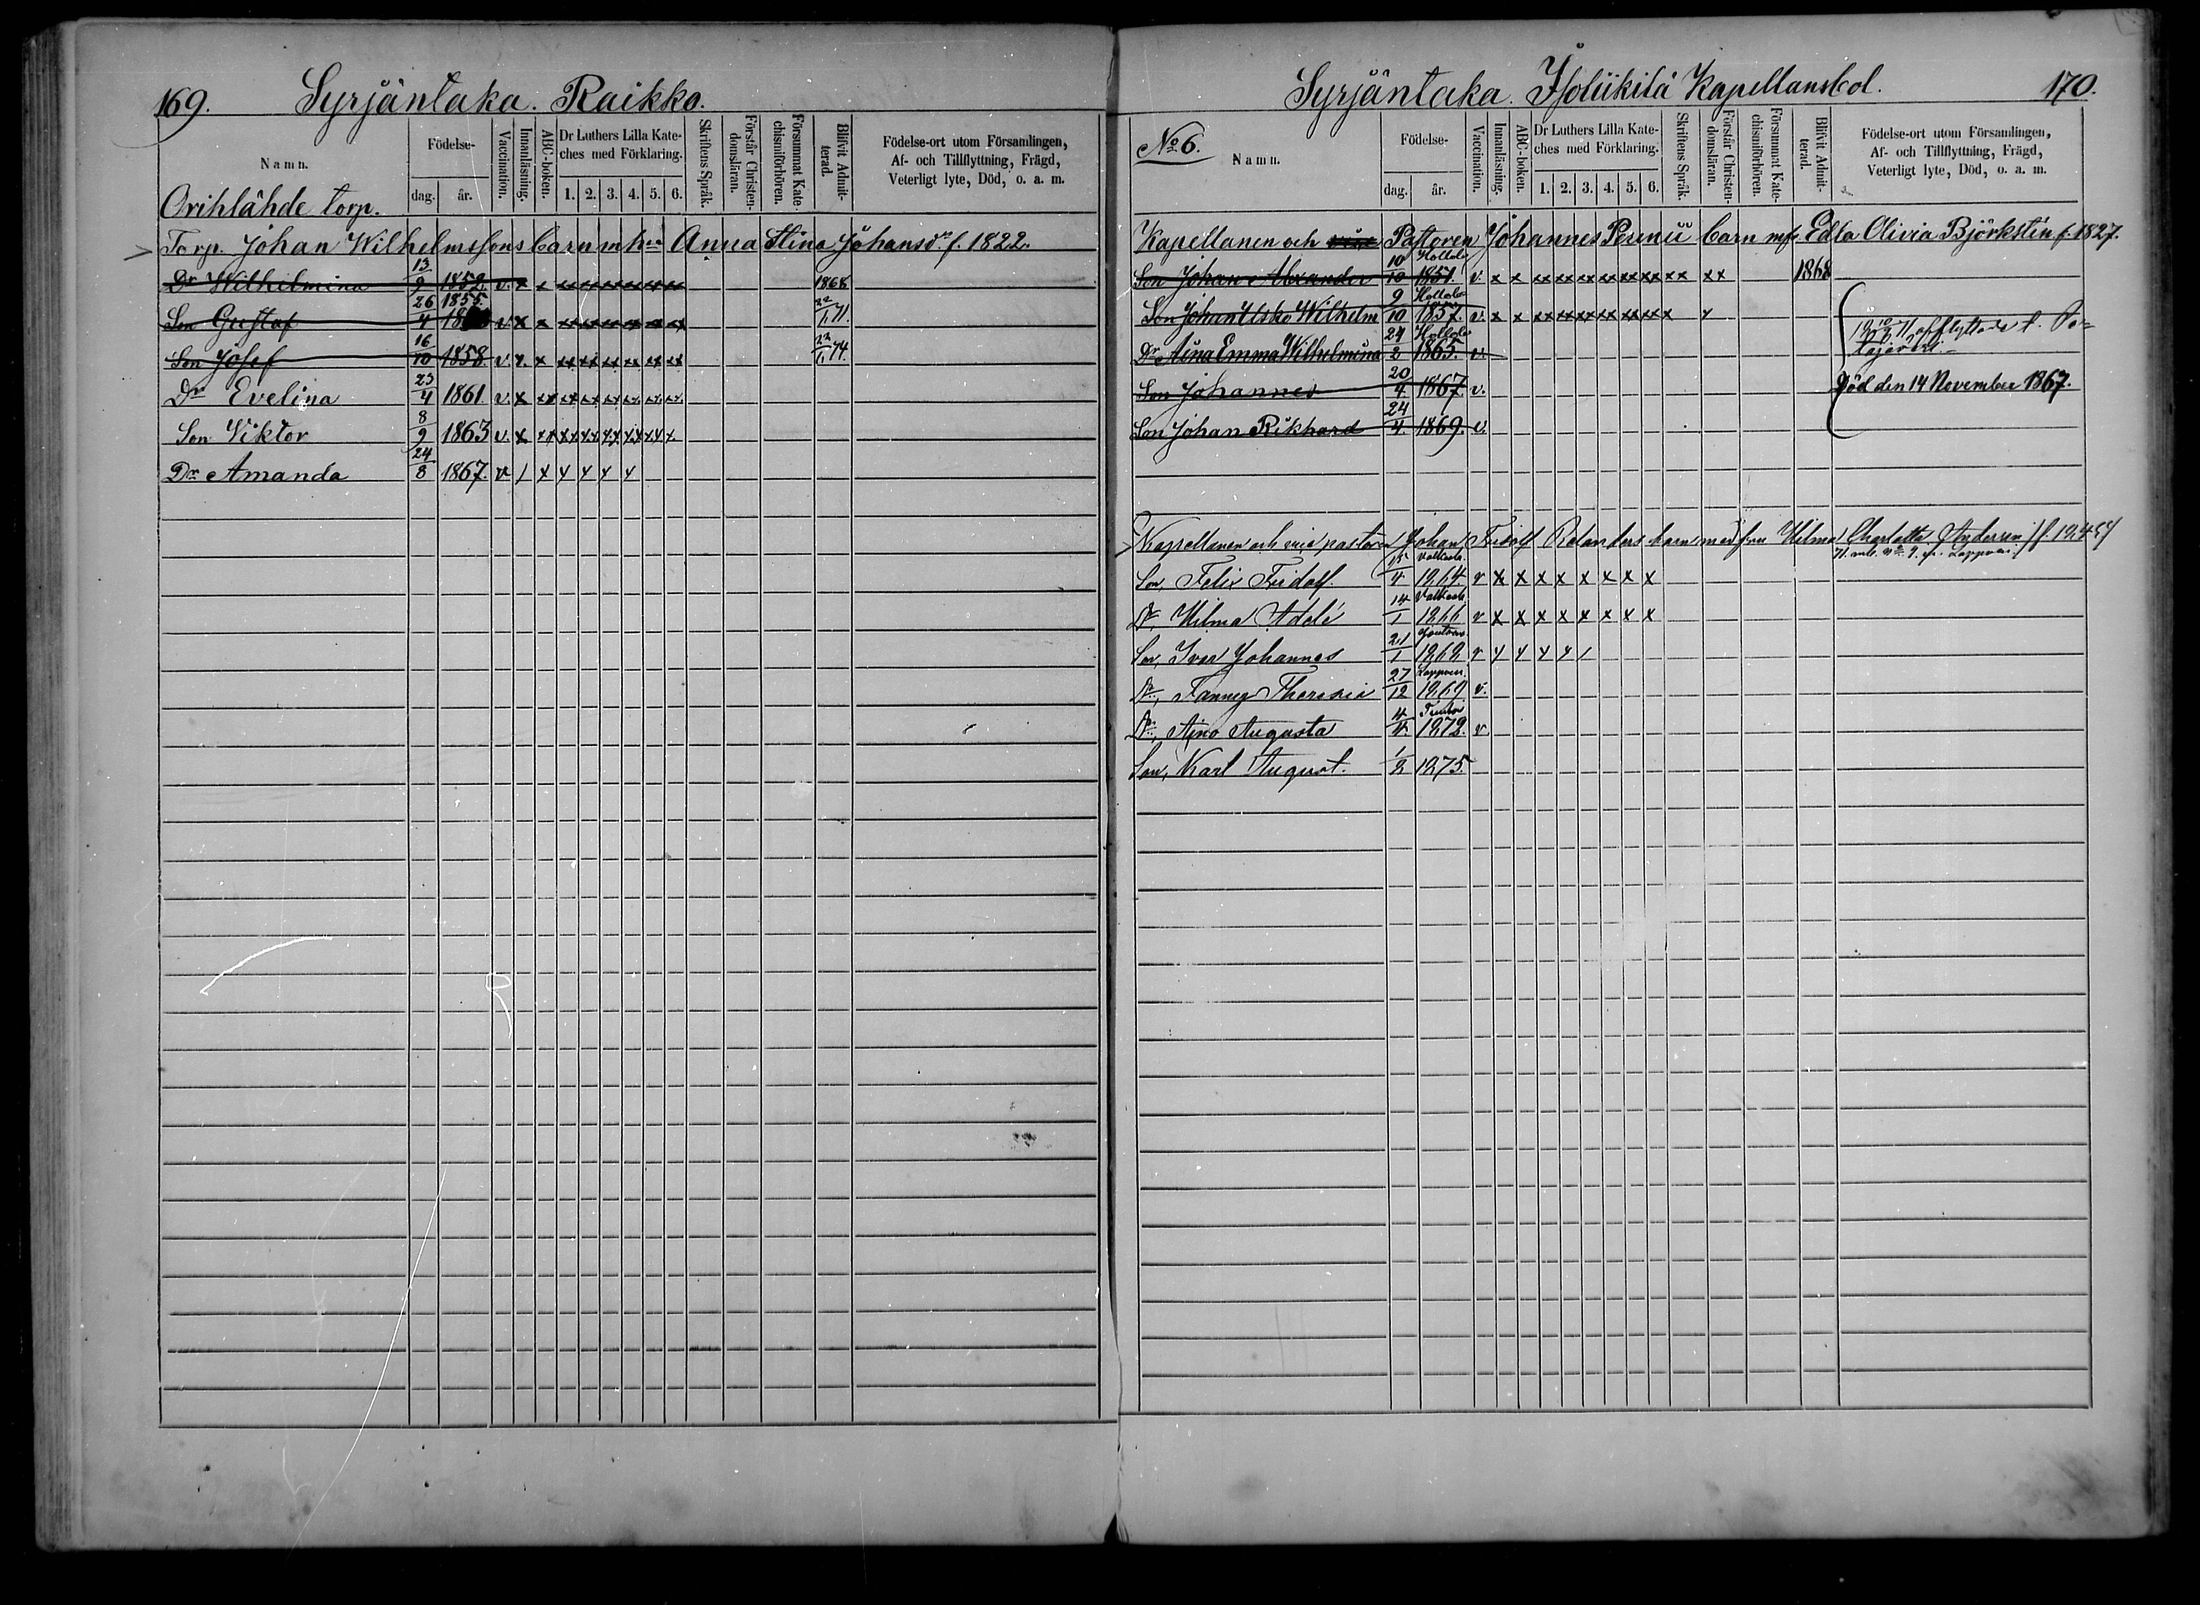 169. Syrjäntaka. Raikko.
Namn. Födelse- dag. år. Vaccination. Innanläsning. ABC-boken. Dr Luthers Lilla Kate-ches med Förklaring. 1. 2. 3. 4. 5. 6. Skriftens Språk. Förstår Christen-domsläran. Försummat Kate-chismiförhören. Blifvit Admit-terad. Födelse-ort utom Församlingen, Af- och Tillflyttning, Frägd, Veterligt lyte, Död, o. a. m.
Orihlähde torp.
Torp. Johan Wilhelmssons barn m hu Anna Stina Johansdr f. 1822.
Dr Wilhelmina 13/9 1852. v. x x xx xx xx xx xx xx 1868
Son Gustaf 26/4 1855. v x x xx xx xx xx xx xx 22/1 71.
Son Josef 16/10 1858. v v. x xx xx xx xx xx xx 22/1 74.
Dr Evelina 23/4 1861 v. x xx xx xx xx xx xx xx
Son Viktor 8/9 1863 v. x xx xx xx xx xx xx x.
Dr Amanda 24/8 1867. v / x x x x x
Syrjäntaka. Kapellansbol. 170.
No 6. Namn. Födelse- dag. år. Vaccination. Innanläsning. ABC-boken. Dr Luthers Lilla Kate-ches med Förklaring. 1. 2. 3. 4. 5. 6. Skriftens Språk. Förstår Christen-domsläran. Försummat Kate-chismiförhören. Blifvit Admit-terad. Födelse-ort utom Församlingen, Af- och Tillflyttning, Frägd, Veterligt lyte, Död, o. a. m.
Kapellanen och Pastoren Johannes barn mf. Edla Olivia Björkstén f. 1827.
Son Johan Alexander 10/10 Hollola 1851. v. x x xx xx xx xx xx xx xx xx 1868
Son Johan Wilhelm 9/10 Hollola 1857. v. x x xx xx xx xx xx xx x x
Dr Aina Emma Wilhelmina 24/2 Hollola 1865. v. afflyttade t.
Son Johannes 20/4 1867. v. Död den 14 November 1867.
Son Johan Rikhard 24/4. 1869. v.
Kapellanen och vice pastoren Johan Fridolf Relanders barn med fru Hilma Charlotta
Son, Felix Fridolf. 1864. v x x x x x x x x
Dr Hilma Adele 14/1 1866 v x x x x x x x x
Son, Ivar Johannes 21/1 1868 v x x x x /
Dr, Fanny Theresia 27/12 1869 v.
Dr, Aino Augusta 4/4. 1872. v
Son, Karl August. 1/2 1875.